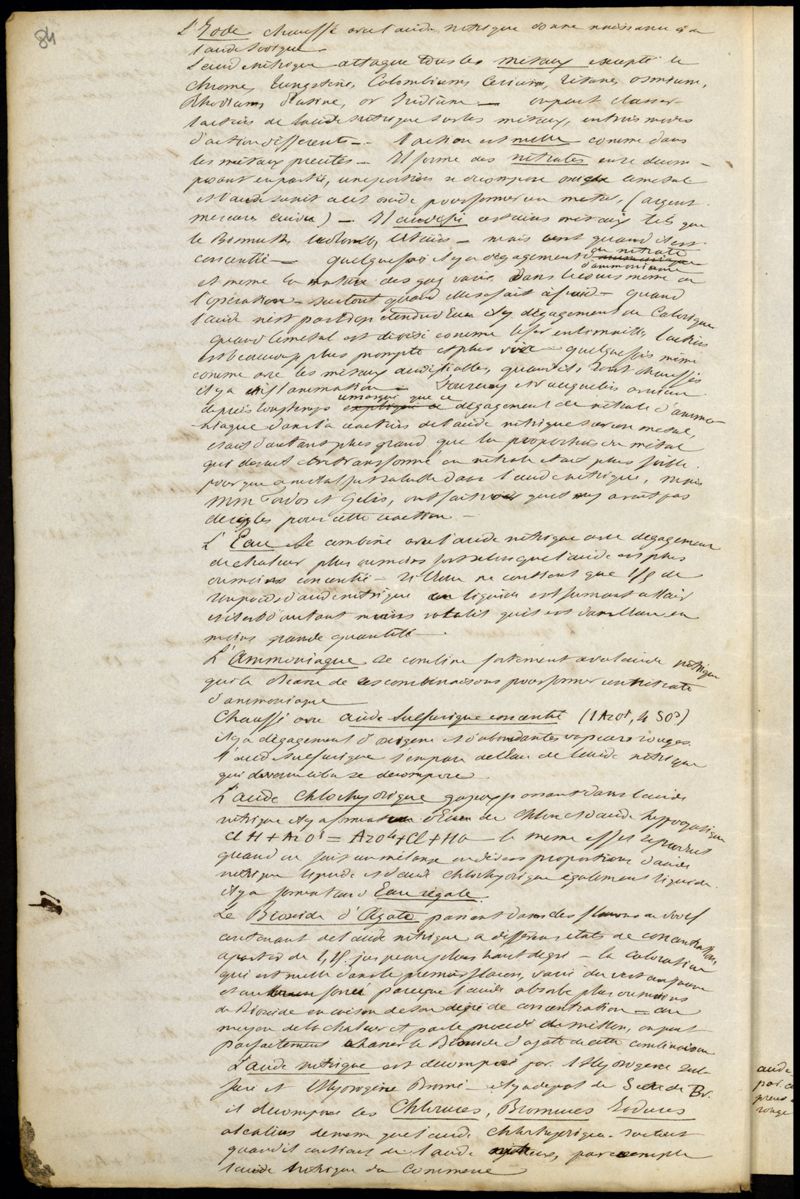 84
L'Iode chauffé avec l'acide nitrique donne naissance à
l'acide iodique
L'acide nitrique attaque tous les métaux excepté le
chrome, Tungstène, Colombium, Cerium, Titane, osmium,
Rhodium, Platine, or Iridium — on peut classer
l'action de l'acide nitrique sur les métaux, en trois modes
d'action différents — l'action est nulle comme dans
les métaux précités — Il forme des nitrates en se décom-
posant en partie, une portion se décompose oxide le métal
et l'acide s'unit à cet oxide pour former un nitrate, (argent
mercure cuivre) — Il certains métaux tels que
le Bismuth, — mais quand il est
concentré — quelquefois il y a dégagement du nitrate
d'ammoniaque
et même la nature des gaz varie dans le cours même de
l'opération — surtout quand elle se fait à froid — quand
l'acide n'est pas trop étendu d'Eau il y a dégagement de Calorique
quand le métal est divisé comme le fer en limaille, l'action
est beaucoup plus prompte et plus vive — quelquefois même
comme avec les métaux oxidables, quand ils sont chauffés
il y a inflammation — Fourcroy et Vauquelin avaient
remarqué que ce
depuis longtemps expliqué ce dégagement de nitrate d'ammo-
niaque dans la réaction de l'acide nitrique sur un métal,
était d'autant plus grand, que la proportion du métal
qui devait être transformé en nitrate était plus faible
pour que ce métal fut soluble dans l'acide nitrique, mais
MM Fordos et Gelis, ont fait voir qu'il n'y avait pas
de règles pour cette réaction —
L'Eau se combine avec l'acide nitrique avec dégagement
de chaleur plus ou moins fort selon que l'acide est plus
ou moins concentré — Si l'Eau ne contient que 1/8 de
son poids d'acide nitrique le liquide est fumant à l'air
et est d'autant moins volatil qu'il est dans l'eau en
moins grande quantité —
L'Ammoniaque se combine fortement avec l'acide nitrique
de ses combinaisons pour former un nitrate
d'ammoniaque
Chauffé avec acide sulfurique concentré (1 AzO⁵, 4 SO³)
il y a dégagement d'oxigène et d'abondantes vapeurs rouges
l'acide sulfurique s'empare de l'Eau de l'acide nitrique
qui devenu libre se décompose
L'acide Chlorhydrique gazeux passant dans l'acide
nitrique il y a formation d'Eau de Chlore et d'acide hypoazotique
ClH + AzO⁵ = AzO⁴ + Cl + HO — le même effet se produit
quand on fait un mélange en diverses proportions d'acide
nitrique liquide et d'acide chlorhydrique également liquide
il y a formation d'Eau régale.
Le Bioxide d'Azote passant dans des flacons de Woolf
contenant de l'acide nitrique à différens états de concentration
à partir de 1,15 jusqu'au plus haut degré — la coloration
qui est nulle dans le premier flacon, varie du vert au jaune
et au brun foncé parceque l'acide absorbe plus ou moins
de Bioxide en raison de son degré de concentration — au
moyen de la chaleur et par le procédé de Millon, on peut
parfaitement chasser le Bioxide d'azote de cette combinaison
L'acide nitrique est décomposé par l'Hydrogène sul-
furé et l'Hydrogène Bromé — il y a dépôt de S et de Br.
il décompose les Chlorures, Bromures Iodures
alcalins de même que l'acide Chlorhydrique surtout
quand il contient de l'acide nitreux, par exemple
l'acide nitrique du Commerce
acide
par
rouge